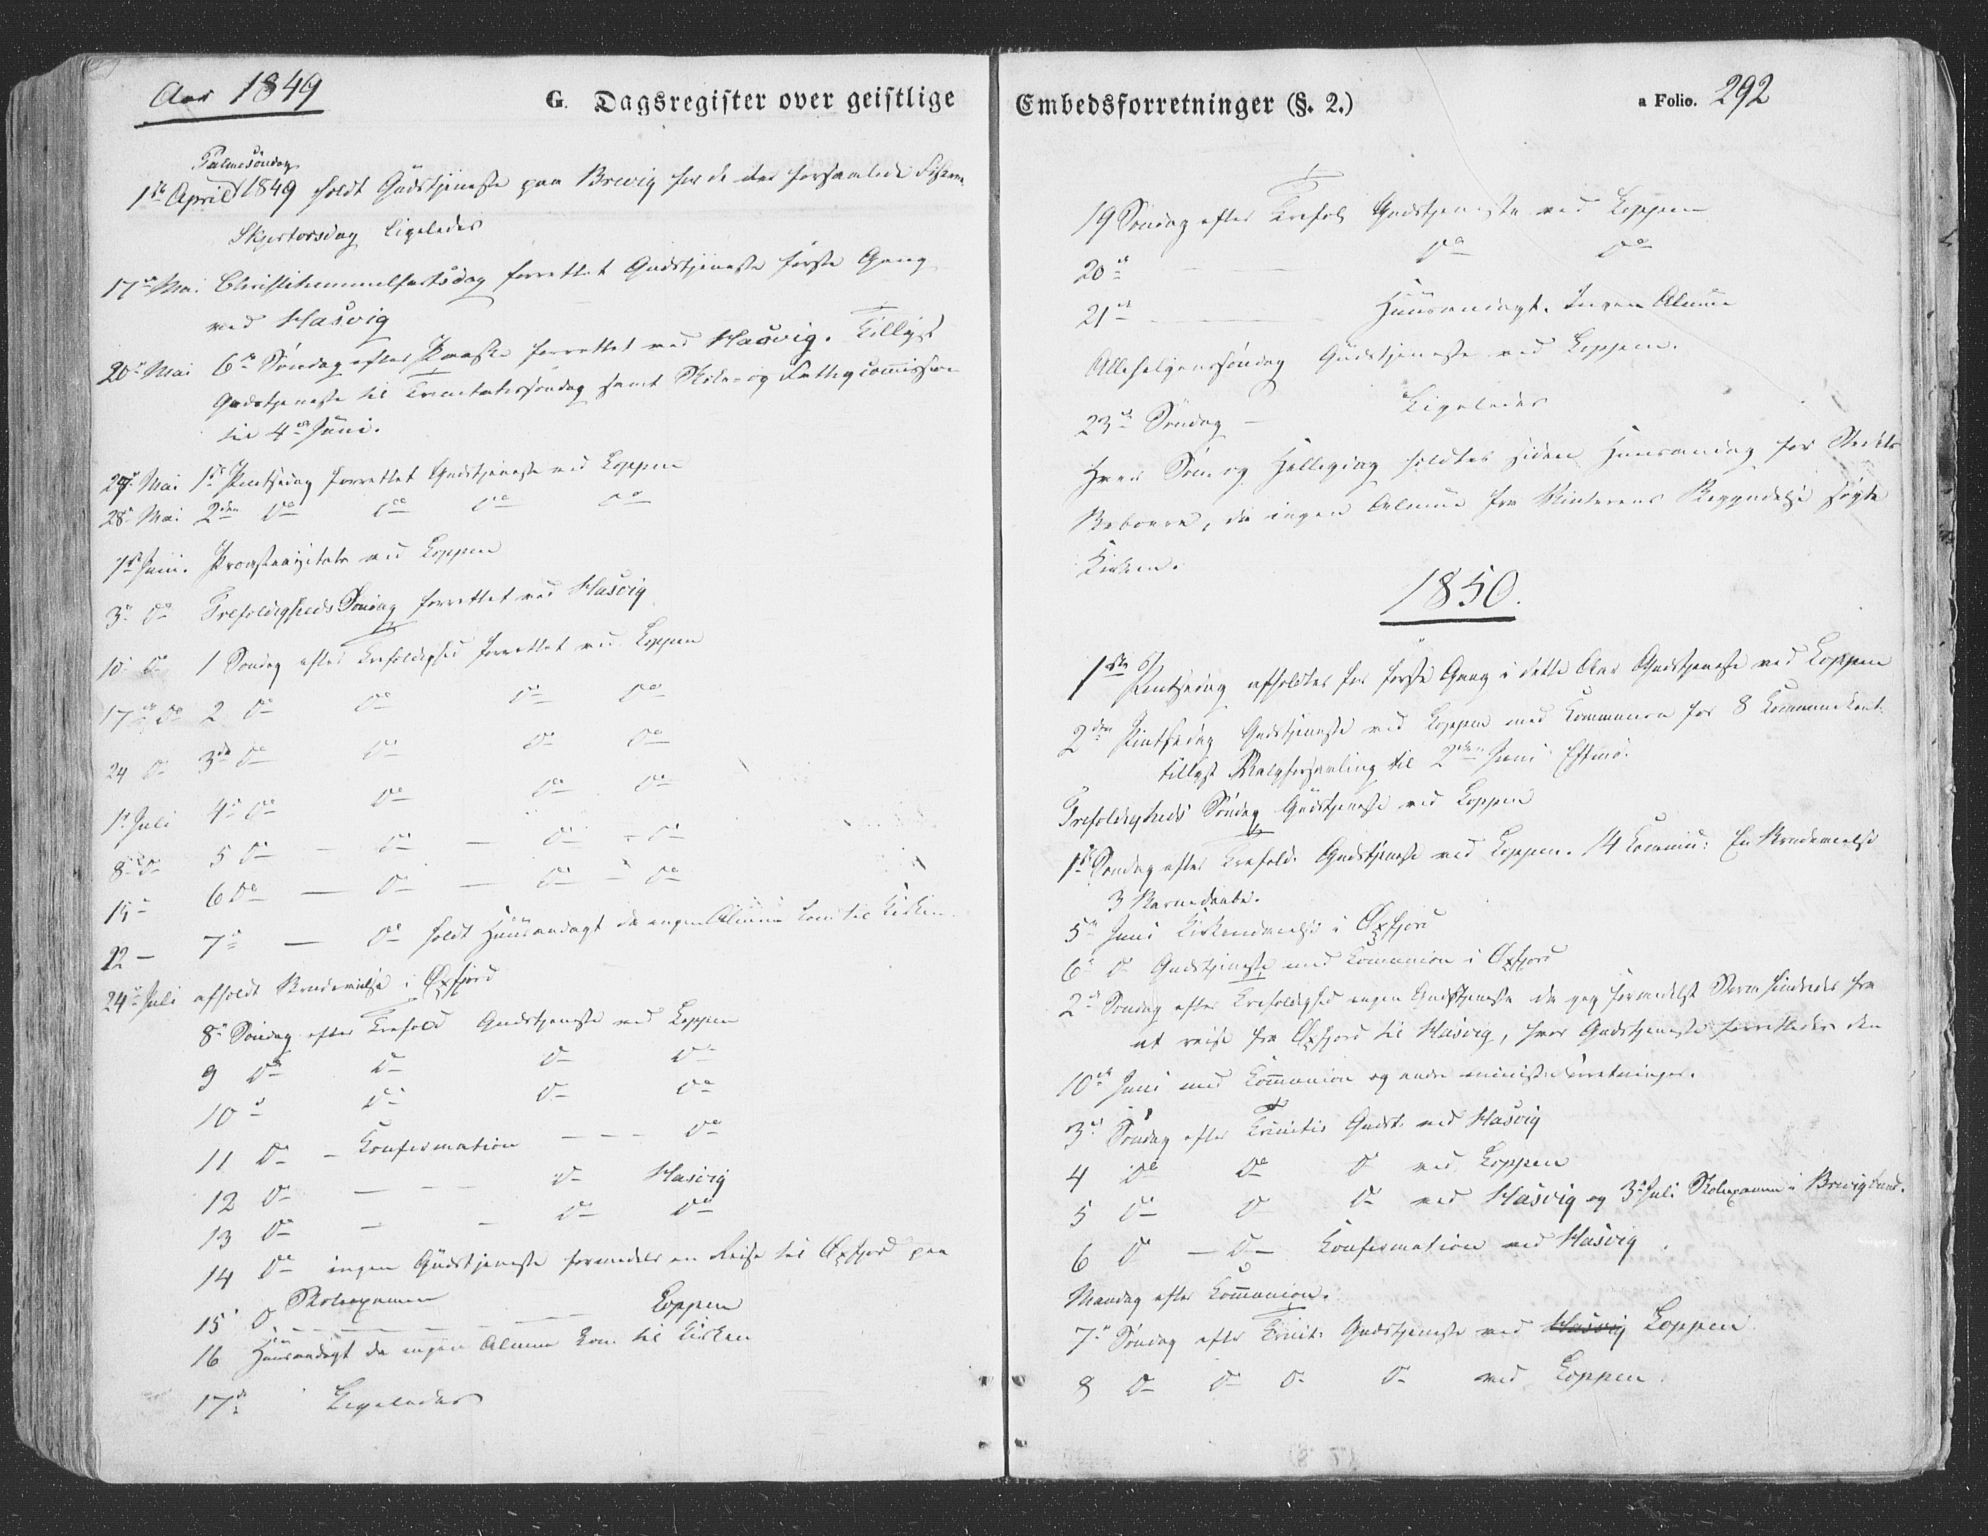 Aar 1849
G. Dagsregister over geistlige
Palmesöndag
1ste April 1849 holdt Gudstjeneste paa Brevig for de der forsamlede Fiskere
Skjertorsdag Ligeledes
17de Mai Christihimmelfartsdag forrettet Gudstjeneste første Gang
ved Hasvig
20de Mai 6te Søndag efter Paaske forrettet ved Hasvig. Tillyst
Gudstjeneste til Trinitatissøndag samt Skole- og Fattigcommission
til 4de Juni.
27de Mai 1ste Pintsedag forrettet Gudstjeneste ved Loppen
28de Mai 2den Do Do Do Do
1ste Juni. Provstevisitats ved Loppen
3de Do Trefoldigheds Søndag forrettet ved Hasvig
10de Do 1 Søndag efter Trefoldighed forrettet ved Loppen
17de Do 2 Do Do Do Do
24 Do 3de Do Do Do Do
1ste Juli 4de Do Do Do Do
8de Do 5 Do — Do — Do - Do
15de 6 Do — Do — Do - Do
22 — 7de — Do holdt Huusandagt da ingen Almue kom til Kirken.
24de Juli afholdt Brudevielse i Øxfjord
8de Søndag efter Trefold Gudstjeneste ved Loppen
9 Do Do Do Do
10de Do Do Do
11 Do - Confirmation — - - Do
12 Do — - - Do Hasvig
13 Do — - Do Do
14 Do ingen Gudstjeneste formedelst en Reise til Øxfjord paa
Skoleexamen
15 Do — — — — Loppen
16 Huusandagt da ingen Almue kom til Kirken
17de Ligeledes
Embedsforretninger (§. 2.)
a Folio. 292
19 Søndag efter Trefol Gudstjeneste ved Loppen
20de — — Do Do
21de — — — Huusandagt. Ingen Almue
Allehelgenssöndag Gudstjeneste ved Loppen.
23de Søndag — Ligeledes
Hver Søn og Helligdag holdtes siden Huusandag for Stedets
Beboere, da ingen Almue fra Vinterens Begyndelse søgte
Kirken.
1850.
1ste Pintsedag afholdtes for første Gang i dette Aar Gudstjeneste ved Loppen
2den Pintsedag Gudstjeneste ved Loppen med Communion for 8 Communikant.
tillyst Valgforsamling til 2den Juni Eftmd.
Trefoldigheds Søndag Gudstjeneste ved Loppen
1ste Søndag efter Trefold. Gudstjeneste ved Loppen. 14 Commu: En Brudevielse
3 Barnedaabe.
5te Juni Kirkendvielse i Øxfjord
6te Do Gudstjeneste med Communion i Øxfjord
2de Søndag efter Trefoldighed ingen Gudstjeneste da jeg formedelst Storm hindredes fra
at reise fra Øxfjord til Hasvig, hvor Gudstjeneste forrettedes den
10de Juni med Communion og andre ministerielle forretninger.
3de Søndag efter Trinitis Gudst. ved Hasvig
4 Do Do Do ved Loppen
5 Do Do Do ved Hasvig og 3de Juli Skolexamen i Brevigbund.
6 Do — Do — Confirmation ved Hasvig.
Mandag efter Communion.
7de Søndag efter Trinit: Gudstjeneste ved Hasvig Loppen
8 Do Do Do Do ved Loppen.